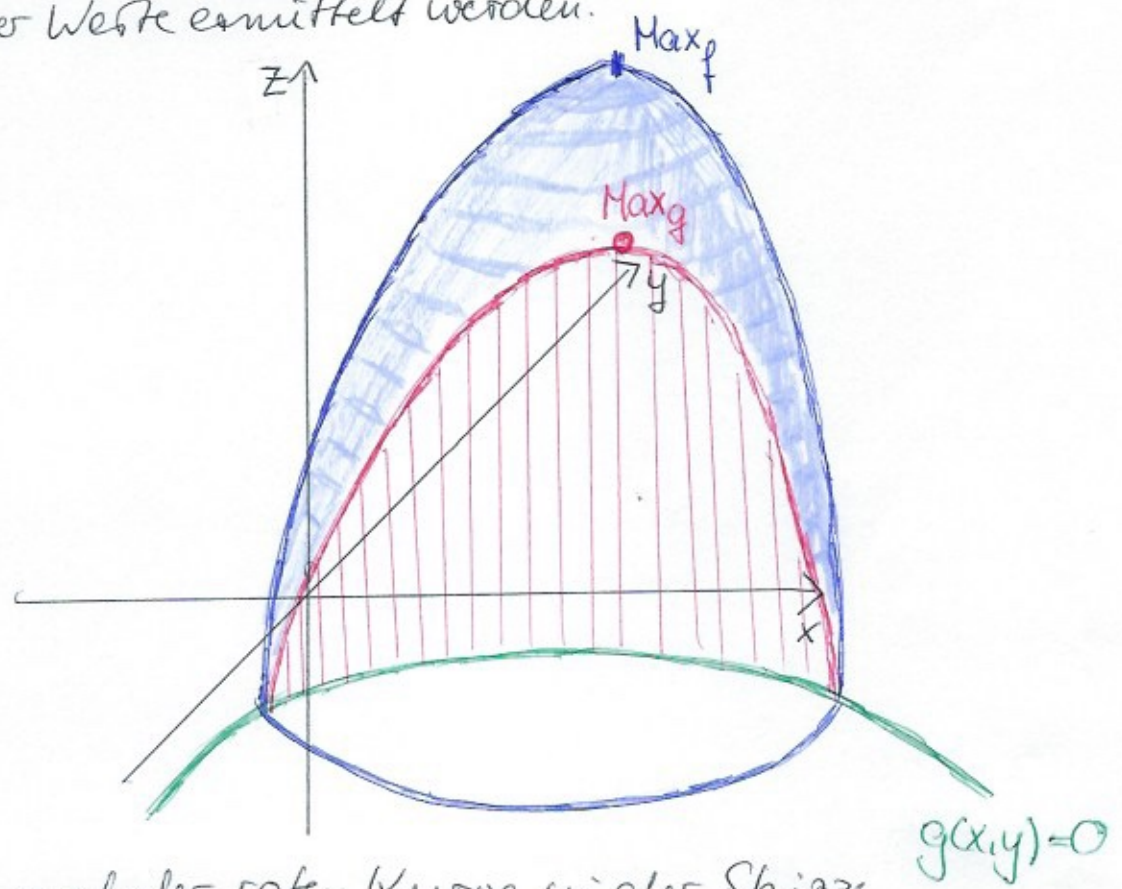 er Werte ermittelt werden.
Max_f
z
Max_g
y
x
g(x,y)=0
der roten Kurve in der Skizze